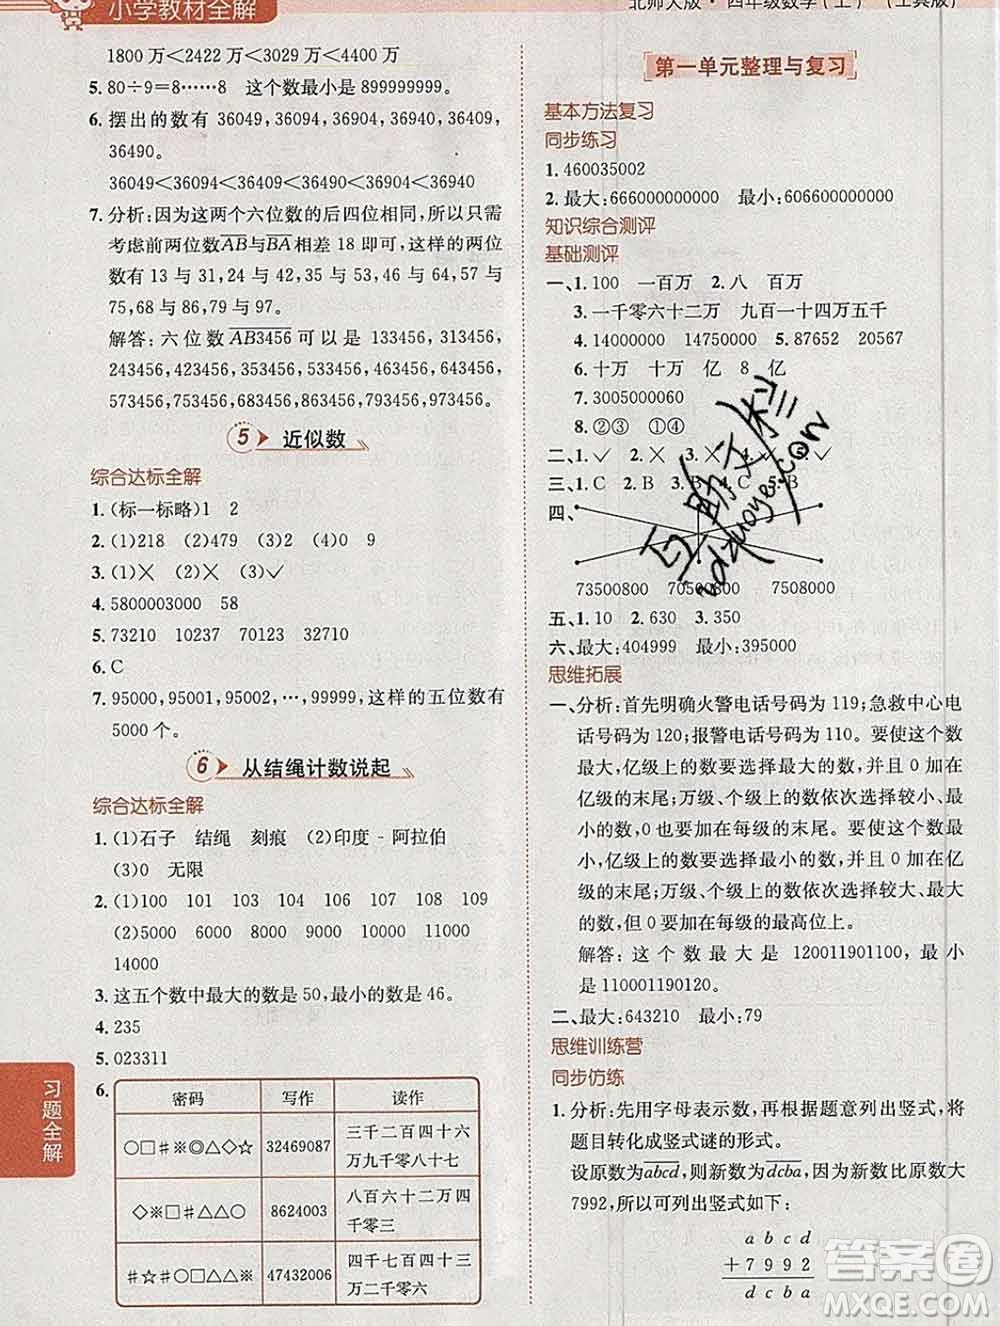 小学教材全解
北师大版·四年级数学(上) (工具版)
1800万<2422万<3029万<4400万
5. 80÷9=8……8 这个数最小是899999999。
6. 摆出的数有 36049,36094,36904,36940,36409,
36490。
36049<36094<36409<36490<36904<36940
7. 分析:因为这两个六位数的后四位相同,所以只需
考虑前两位数AB与BA相差18即可,这样的两位
数有13与31,24与42,35与53,46与64,57与
75,68与86,79与97。
解答:六位数AB3456可以是133456,313456,
243456,423456,353456,533456,463456,643456,
573456,753456,683456,863456,793456,973456。
5 近似数
综合达标全解
1. (标一标略)1 2
2. (1)218 (2)479 (3)512 (4)0 9
3. (1)× (2)× (3)✓
4. 5800003000 58
5. 73210 10237 70123 32710
6. C
7. 95000,95001,95002,…,99999,这样的五位数有
5000个。
6 从结绳计数说起
综合达标全解
1. (1)石子 结绳 刻痕 (2)印度-阿拉伯
(3)0 无限
2. (1)100 101 103 104 106 108 109
(2)5000 6000 8000 9000 10000 11000
14000
3. 这五个数中最大的数是50,最小的数是46。
4. 235
5. 023311
6.
密码 写作 读作
○□♯※◎△◇☆ 32469087 三千二百四十六
万九千零八十七
◇※□♯△△○ 8624003 八百六十二万四
千零三
♯☆♯○□△△※ 47432006 四千七百四十三
万二千零六
习题全解
第一单元整理与复习
基本方法复习
同步练习
1. 460035002
2. 最大:666000000000 最小:606600000000
知识综合测评
基础测评
一、1. 100 一百万 2. 八 百万
3. 一千零六十二万 九百一十四万五千
4. 14000000 14750000 5. 87652 20567
6. 十万 十万 亿 8 亿
7. 3005000060
8. ②③ ①④
二、1. ✓ 2. × 3. × 4. × 5. ✓
三、1. C 2. B 3. A 4. C 5. B
四、
73500800 70500800 7508000
五、1. 10 2. 630 3. 350
六、最大:404999 最小:395000
思维拓展
一、分析:首先明确火警电话号码为119;急救中心电
话号码为120;报警电话号码为110。要使这个数
最大,亿级上的数要选择最大的一个,并且0加在
亿级的末尾;万级、个级上的数依次选择较小、最
小的数,0也要加在每级的末尾。要使这个数最
小,亿级上的数要选择最小的一个,并且0加在亿
级的末尾;万级、个级上的数依次选择较大、最大
的数,但0要加在每级的最高位上。
解答:这个数最大是120011901100,最小
是110001190120。
二、最大:643210 最小:79
思维训练营
同步仿练
1. 分析:先用字母表示数,再根据题意列出竖式,将
题目转化成竖式谜的形式。
设原数为abcd,则新数为dcba,因为新数比原数大
7992,所以可列出竖式如下:
a b c d
+7 9 9 2
d c b a
答案圈
MXQE.COM